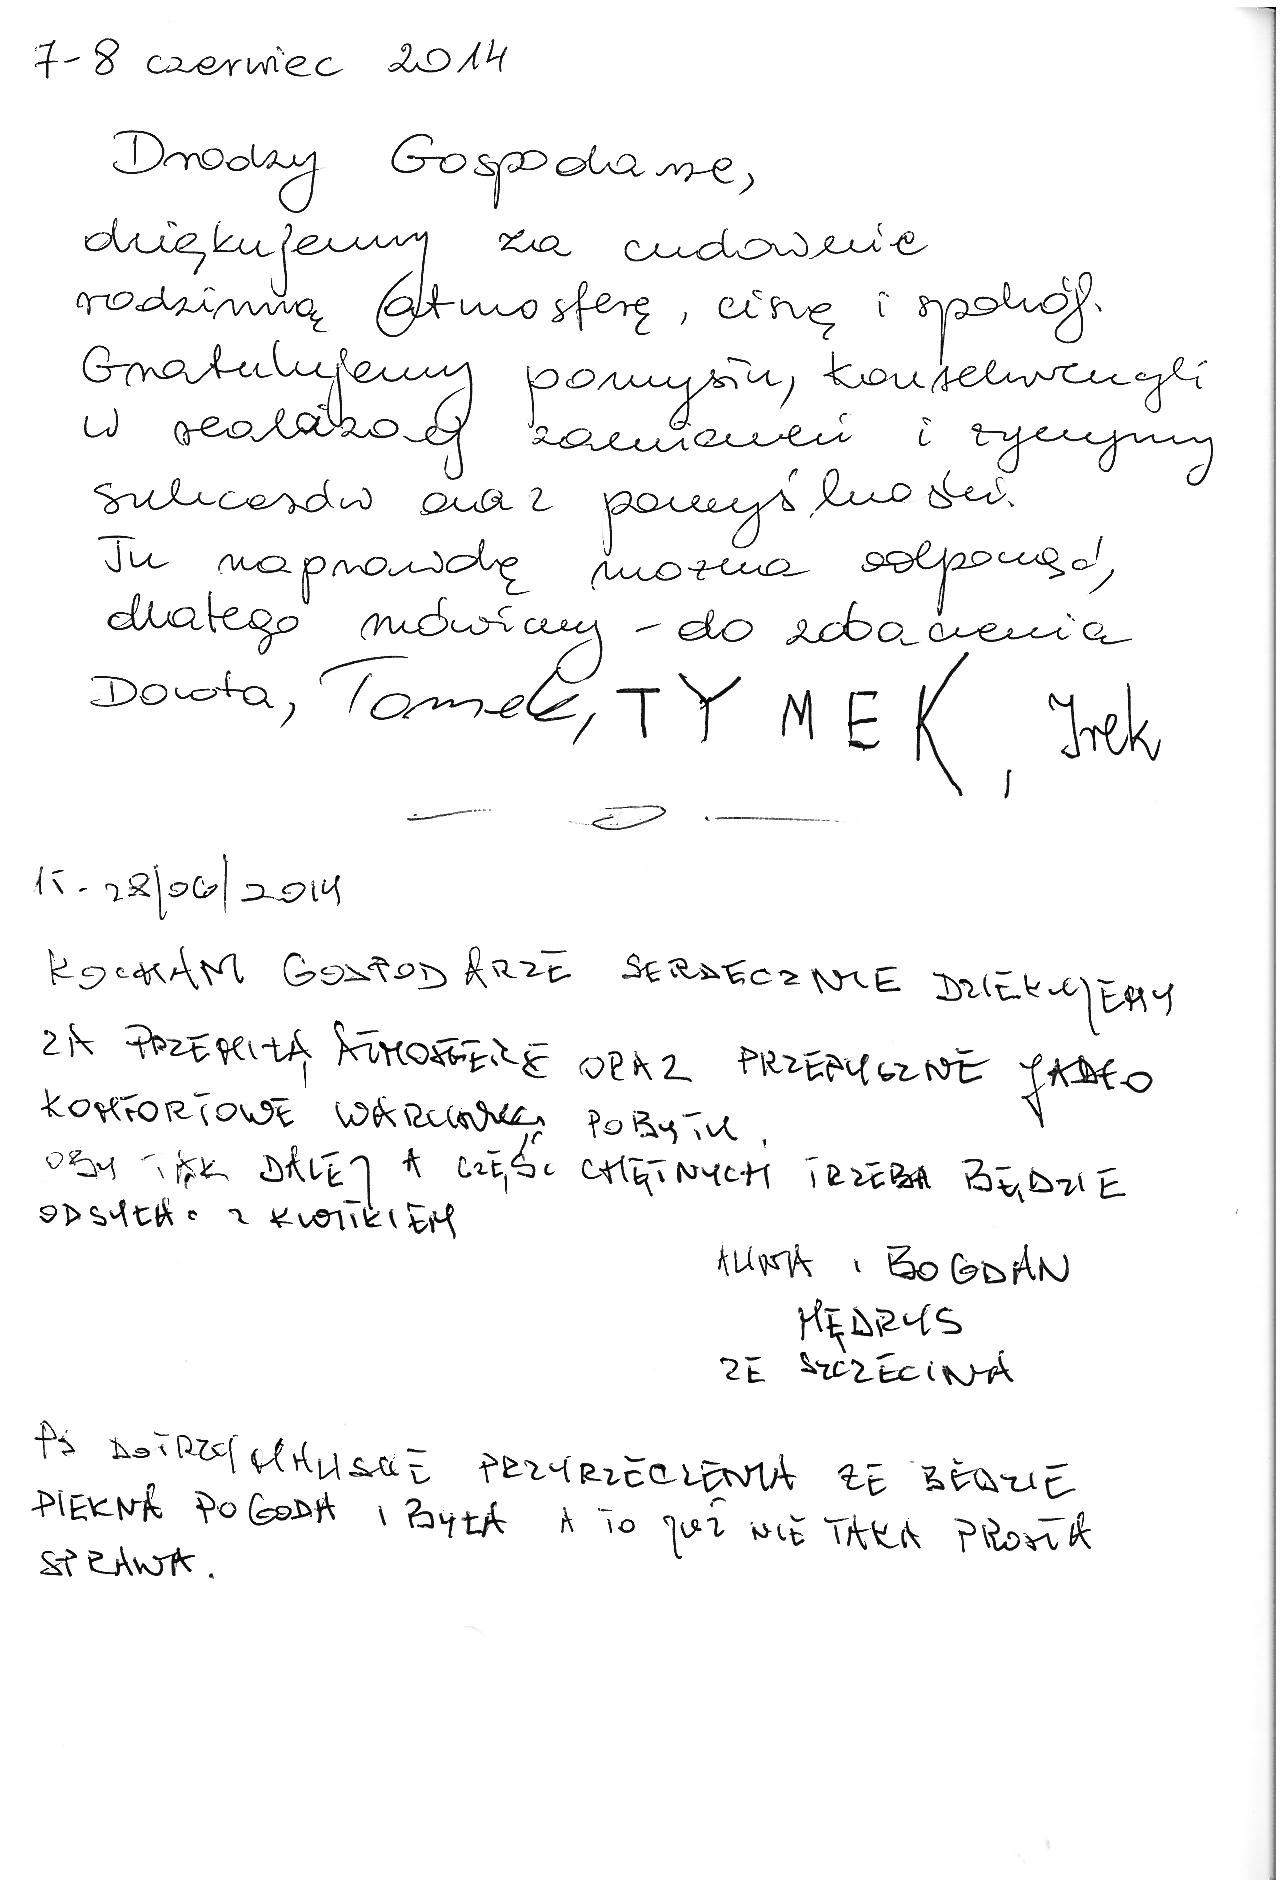 7-8 czerwiec 2014
Drodzy Gospodarze,
dziękujemy za cudownie
rodzinną atmosferę, ciszę i spokój.
Gratulujemy pomysłu, konsekwencji
w realizacji zamierzeń i życzymy
sukcesów oraz pomyślności.
Tu naprawdę można odpocząć,
dlatego mówimy - do zobaczenia
Dorota, Tomek, TYMEK, Irek
15-28/06/2014
KOCHANI GOSPODARZE SERDECZNIE DZIEKUJEMY
ZA PRZEMIŁĄ ATMOSFERE ORAZ PRZEPYSZNE JADŁO
KOMFORTOWE WARUNKI POBYTU.
OBY TAK DALEJ A CZĘŚĆ CHĘTNYCH TRZEBA BĘDZIE
ODSYŁAĆ Z KWITKIEM
ALINA i BOGDAN
MĘDRYS
ZE SZCZECINA
PS DOTRZYMALISCIE PRZYRZECZENIA ZE BEDZIE
PIEKNA POGODA I BYŁA A TO JUŻ NIE TAKA PROSTA
SPRAWA.